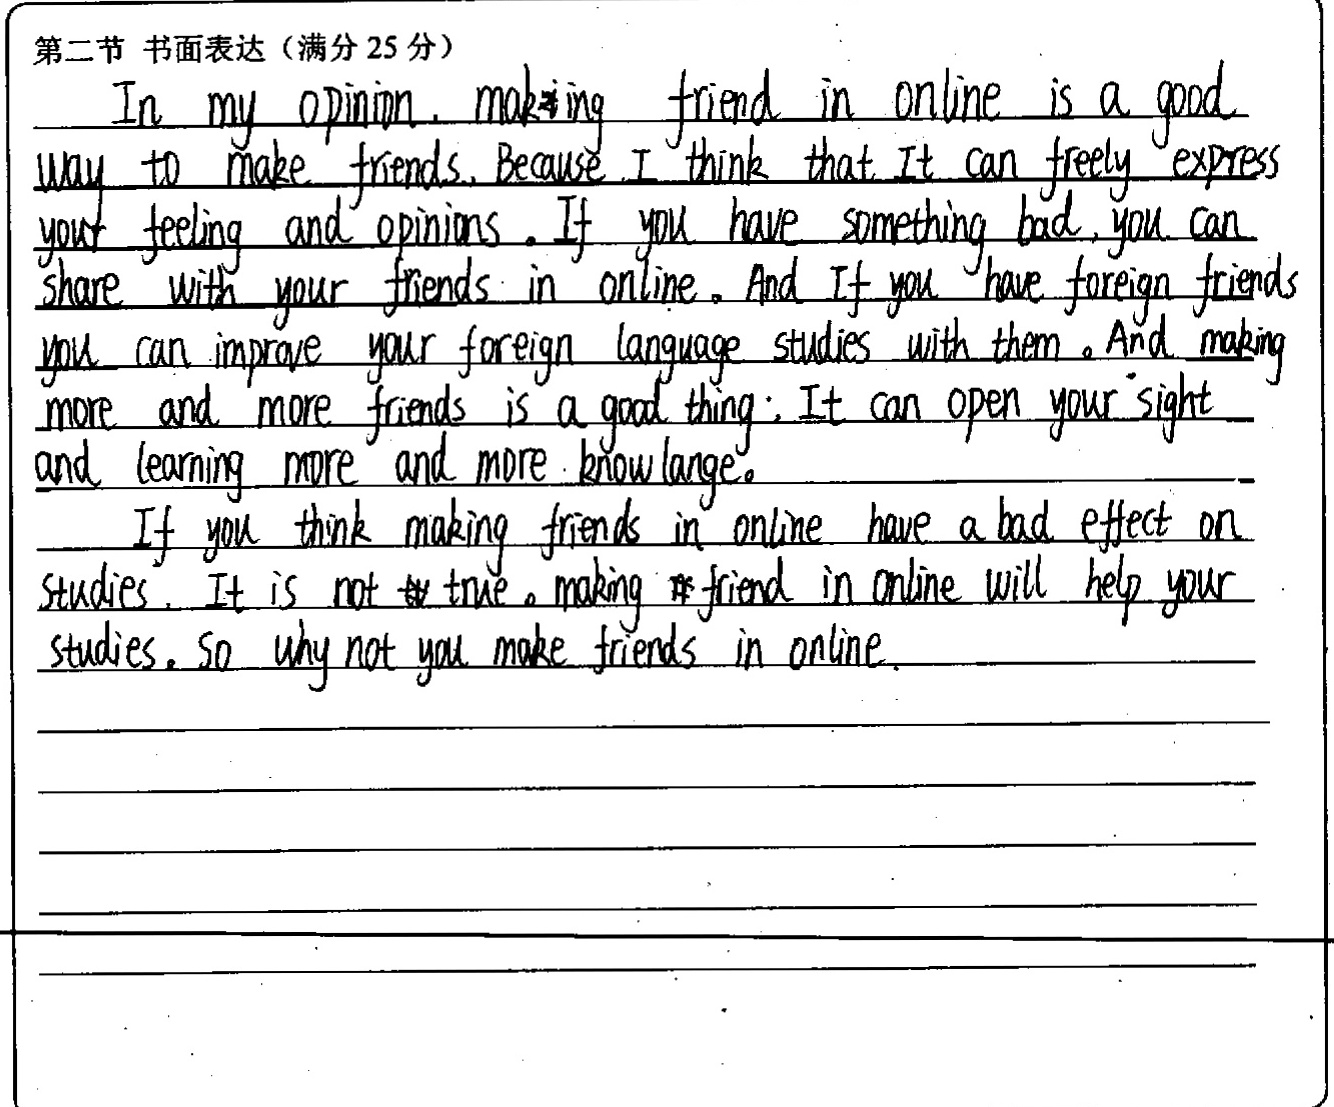 第二节 书面表达（满分 25 分）
In my opinion. making friend in online is a good
way to make friends. Because I think that It can freely express
your feeling and opinions. If you have something bad, you can
share with your friends in online. And If you have foreign friends
you can improve your foreign language studies with them. And making
more and more friends is a good thing. It can open your sight
and learning more and more knowlange.
If you think making friends in online have a bad effect on
studies. It is not true. making friend in online will help your
studies. So why not you make friends in online.